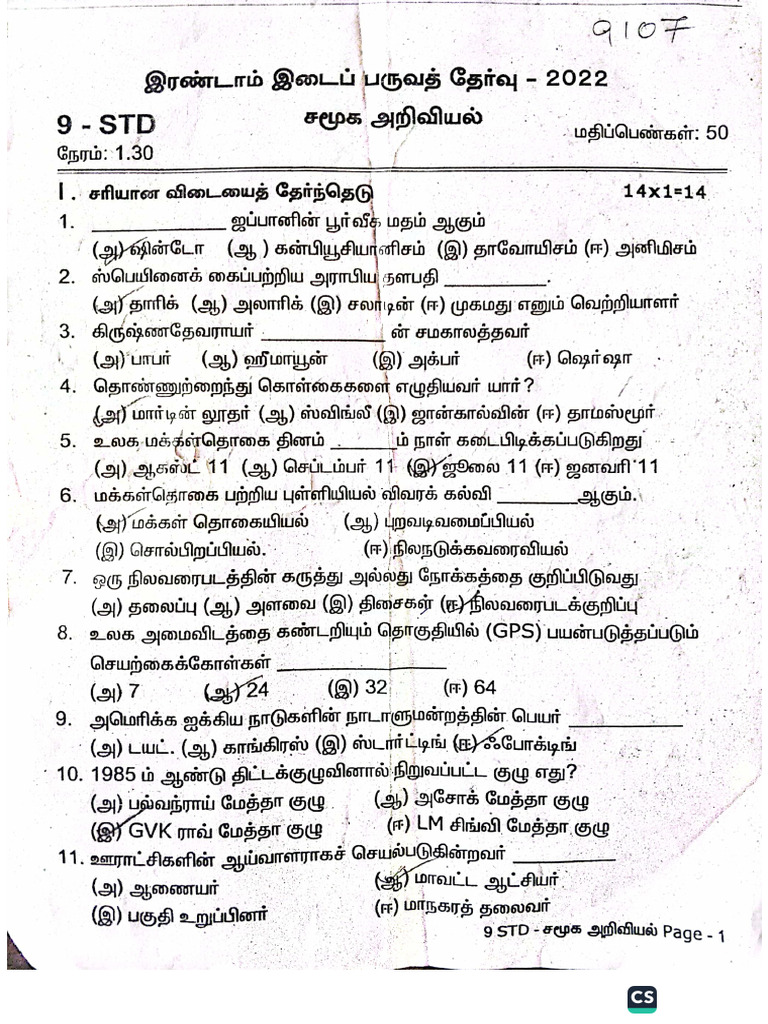 9107
இரண்டாம் இடைப் பருவத் தேர்வு - 2022
9 - STD
சமூக அறிவியல்
மதிப்பெண்கள்: 50
நேரம்: 1.30
I . சரியான விடையைத் தேர்ந்தெடு 14x1=14
1. ____________ ஜப்பானின் பூர்வீக மதம் ஆகும்
(அ) ஷின்டோ (ஆ ) கன்பியூசியானிசம் (இ) தாவோயிசம் (ஈ) அனிமிசம்
2. ஸ்பெயினைக் கைப்பற்றிய அராபிய தளபதி __________.
(அ) தாரிக் (ஆ) அலாரிக் (இ) சலாடின் (ஈ) முகமது எனும் வெற்றியாளர்
3. கிருஷ்ணதேவராயர் ____________ ன் சமகாலத்தவர்
(அ) பாபர் (ஆ) ஹீமாயூன் (இ) அக்பர் (ஈ) ஷெர்ஷா
4. தொண்ணுற்றைந்து கொள்கைகளை எழுதியவர் யார்?
(அ) மார்டின் லூதர் (ஆ) ஸ்விங்லீ (இ) ஜான்கால்வின் (ஈ) தாமஸ்மூர்
5. உலக மக்கள்தொகை தினம் ______ம் நாள் கடைபிடிக்கப்படுகிறது
(அ) ஆகஸ்ட் 11 (ஆ) செப்டம்பர் 11 (இ) ஜூலை 11 (ஈ) ஜனவரி 11
6. மக்கள்தொகை பற்றிய புள்ளியியல் விவரக் கல்வி ________ஆகும்.
(அ) மக்கள் தொகையியல் (ஆ) புறவடிவமைப்பியல்
(இ) சொல்பிறப்பியல். (ஈ) நிலநடுக்கவரைவியல்
7. ஒரு நிலவரைபடத்தின் கருத்து அல்லது நோக்கத்தை குறிப்பிடுவது
(அ) தலைப்பு (ஆ) அளவை (இ) திசைகள் (ஈ) நிலவரைபடக்குறிப்பு
8. உலக அமைவிடத்தை கண்டறியும் தொகுதியில் (GPS) பயன்படுத்தப்படும்
செயற்கைக்கோள்கள் ________________
(அ) 7 (ஆ) 24 (இ) 32 (ஈ) 64
9. அமெரிக்க ஐக்கிய நாடுகளின் நாடாளுமன்றத்தின் பெயர் ___________
(அ) டயட். (ஆ) காங்கிரஸ் (இ) ஸ்டார்ட்டிங் (ஈ) ஃபோக்டிங்
10. 1985 ம் ஆண்டு திட்டக்குழுவினால் நிறுவப்பட்ட குழு எது?
(அ) பல்வந்ராய் மேத்தா குழு (ஆ) அசோக் மேத்தா குழு
(இ) GVK ராவ் மேத்தா குழு (ஈ) LM சிங்வி மேத்தா குழு
11. ஊராட்சிகளின் ஆய்வாளராகச் செயல்படுகின்றவர் __________
(அ) ஆணையர் (ஆ) மாவட்ட ஆட்சியர்
(இ) பகுதி உறுப்பினர் (ஈ) மாநகரத் தலைவர்
9 STD - சமூக அறிவியல் Page - 1
CS